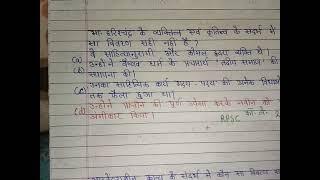 भा. हरिश्चंद्र के व्यक्तित्व एवं कृतित्व के संदर्भ में
सा विवरण सही नहीं है ?
(a) वे साहित्यानुरागी और कोमल हृदय व्यक्ति थे।
(b) उन्होंने वैष्णव धर्म के प्रचारार्थ 'तदीय समाज' की
स्थापना की।
(c) उनका साहित्यिक कार्य गद्य-पद्य की अनेक विधाओं
तक फैला हुआ था।
(d) उन्होंने प्राचीन की पूर्ण उपेक्षा करके नवीन को
अंगीकार किया।
RPSC
के संदर्भ में कौन सा विकल्प